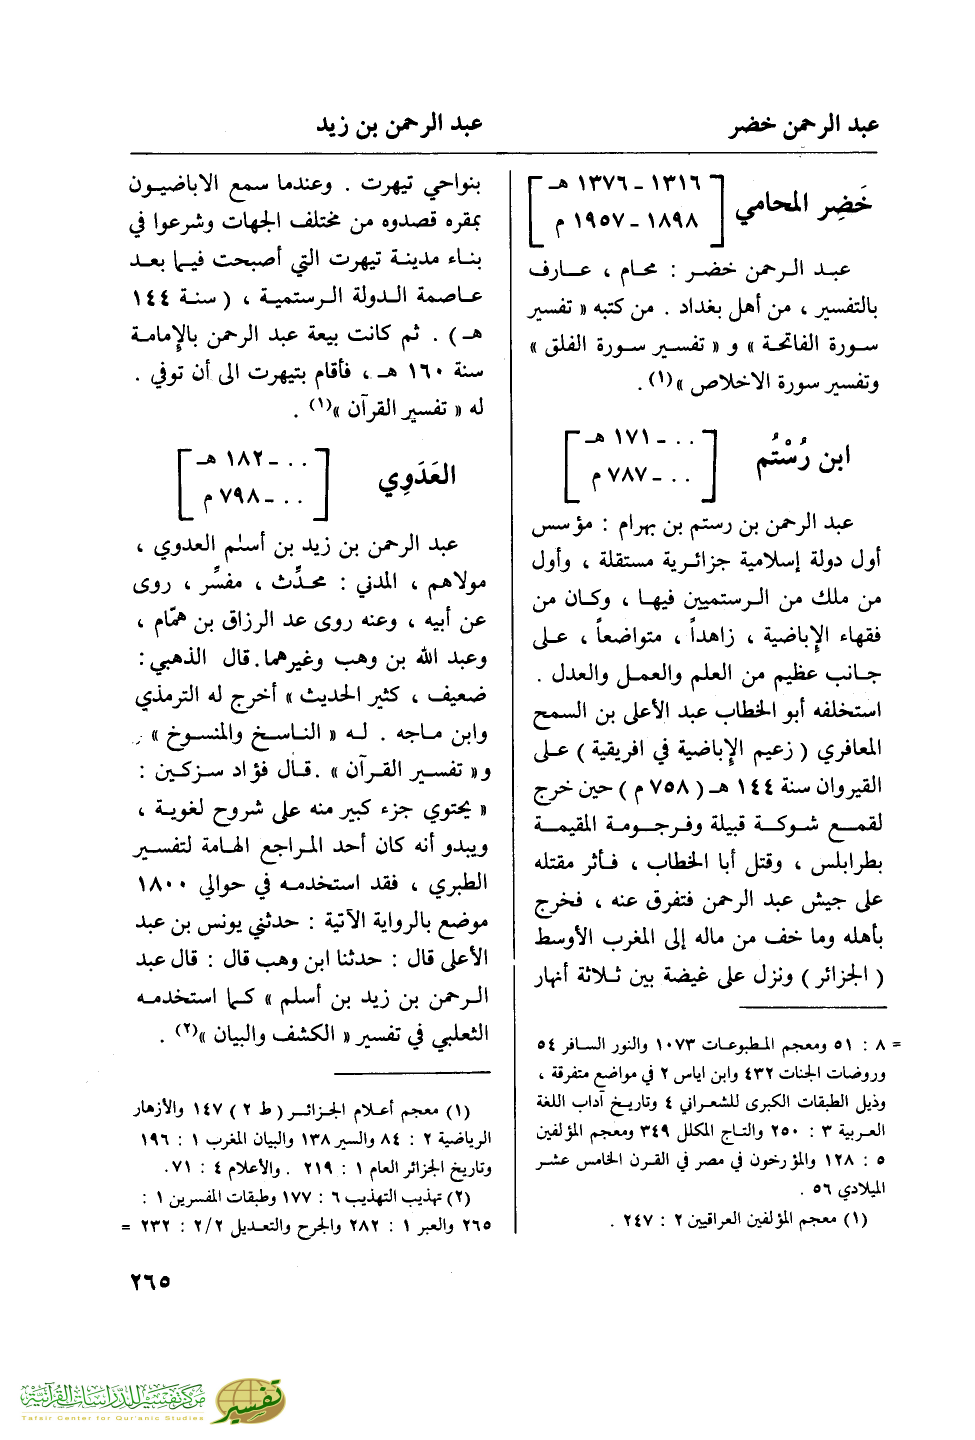 عبد الرحمن خضر
عبد الرحمن بن زيد
خَضِر المحامي
١٣١٦ - ١٣٧٦ هـ
١٨٩٨ - ١٩٥٧ م
عبد الرحمن خضر : محام ، عارف
بالتفسير ، من أهل بغداد . من كتبه « تفسير
سورة الفاتحة » و « تفسير سورة الفلق »
وتفسير سورة الاخلاص »(١).
ابن رُسْتُم
. . - ١٧١ هـ
. . - ٧٨٧ م
عبد الرحمن بن رستم بن بهرام : مؤسس
أول دولة إسلامية جزائرية مستقلة ، وأول
من ملك من الرستميين فيها ، وكان من
فقهاء الإباضية ، زاهداً ، متواضعاً ، على
جانب عظيم من العلم والعمل والعدل .
استخلفه أبو الخطاب عبد الأعلى بن السمح
المعافري ( زعيم الإباضية في افريقية ) على
القيروان سنة ١٤٤ هـ ( ٧٥٨ م ) حين خرج
لقمع شوكة قبيلة وفرجومة المقيمة
بطرابلس ، وقتل أبا الخطاب ، فأثر مقتله
على جيش عبد الرحمن فتفرق عنه ، فخرج
بأهله وما خف من ماله إلى المغرب الأوسط
( الجزائر ) ونزل على غيضة بين ثلاثة أنهار
= ٨ : ٥١ ومعجم المطبوعات ١٠٧٣ والنور السافر ٥٤
وروضات الجنات ٤٣٢ وابن اياس ٢ في مواضع متفرقة ،
وذيل الطبقات الكبرى للشعراني ٤ وتاريخ آداب اللغة
العربية ٣ : ٢٥٠ والتاج المكلل ٣٤٩ ومعجم المؤلفين
٥ : ١٢٨ والمؤرخون في مصر في القرن الخامس عشر
الميلادي ٥٦ .
(١) معجم المؤلفين العراقيين ٢ : ٢٤٧ .
بنواحي تيهرت . وعندما سمع الاباضيون
بمقره قصدوه من مختلف الجهات وشرعوا في
بناء مدينة تيهرت التي أصبحت فيما بعد
عاصمة الدولة الرستمية ، ( سنة ١٤٤
هـ ) . ثم كانت بيعة عبد الرحمن بالإمامة
سنة ١٦٠ هـ ، فأقام بتيهرت الى أن توفي .
له « تفسير القرآن »(١) .
العَدَوِي
. . - ١٨٢ هـ
. . - ٧٩٨ م
عبد الرحمن بن زيد بن أسلم العدوي ،
مولاهم ، المدني : محدِّث ، مفسِّر ، روى
عن أبيه ، وعنه روى عد الرزاق بن همّام ،
وعبد الله بن وهب وغيرهما. قال الذهبي :
ضعيف ، كثير الحديث » أخرج له الترمذي
وابن ماجه . له « الناسخ والمنسوخ »
و« تفسير القرآن » .قال فؤاد سزكين :
« يحتوي جزء كبير منه على شروح لغوية ،
ويبدو أنه كان أحد المراجع الهامة لتفسير
الطبري ، فقد استخدمه في حوالي ١٨٠٠
موضع بالرواية الآتية : حدثني يونس بن عبد
الأعلى قال : حدثنا ابن وهب قال : قال عبد
الرحمن بن زيد بن أسلم » كما استخدمه
الثعلبي في تفسير « الكشف والبيان »(٢) .
(١) معجم أعلام الجزائر ( ط ٢ ) ١٤٧ والأزهار
الرياضية ٢ : ٨٤ والسير ١٣٨ والبيان المغرب ١ : ١٩٦
وتاريخ الجزائر العام ١ : ٢١٩ . والأعلام ٤ : ٧١.
(٢) تهذيب التهذيب ٦ : ١٧٧ وطبقات المفسرين ١ :
٢٦٥ والعبر ١ : ٢٨٢ والجرح والتعديل ٢/٢ : ٢٣٢ =
٢٦٥
مركز تفسير للدراسات القرآنية
Tafsir Center for Qur'anic Studies
تفسير